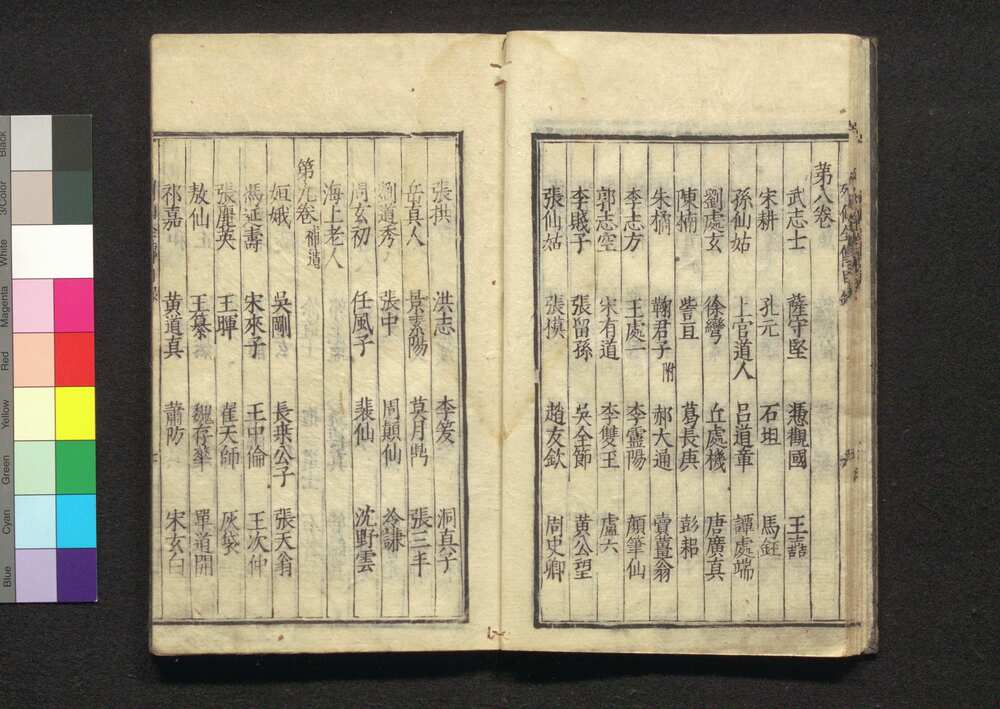 第八卷
武志士 薩守堅 馮觀國 王嚞
宋耕 孔元 石坦 馬鈺
孫仙姑 上官道人 呂道章 譚處端
劉處玄 徐彎 丘處機 唐廣真
陳楠 訾亘 葛長庚 彭耜
朱橘 鞠君子附 郝大通 賣薑翁
李志方 王處一 李靈陽 顏筆仙
郭志空 宋有道 李雙玉 盧六
李賤子 張留孫 吳全節 黃公望
張仙姑 張模 趙友欽 周史卿
張拱 洪志 李笈 洞真子
岳真人 景素陽 莫月鼎 張三丰
劉道秀 張中 周顛仙 冷謙
周玄初 任風子 裴仙 沈野雲
海上老人
第九卷補遺
姮娥 吳剛 長桑公子 張天翁
馮延壽 宋來子 王中倫 王次仲
張麗英 王暉 崔天師 灰袋
敖仙 王綦 魏存華 單道開
祁嘉 黃道真 蕭防 宋玄白
Black
3/Color
White
Magenta
Red
Yellow
Green
Cyan
Blue